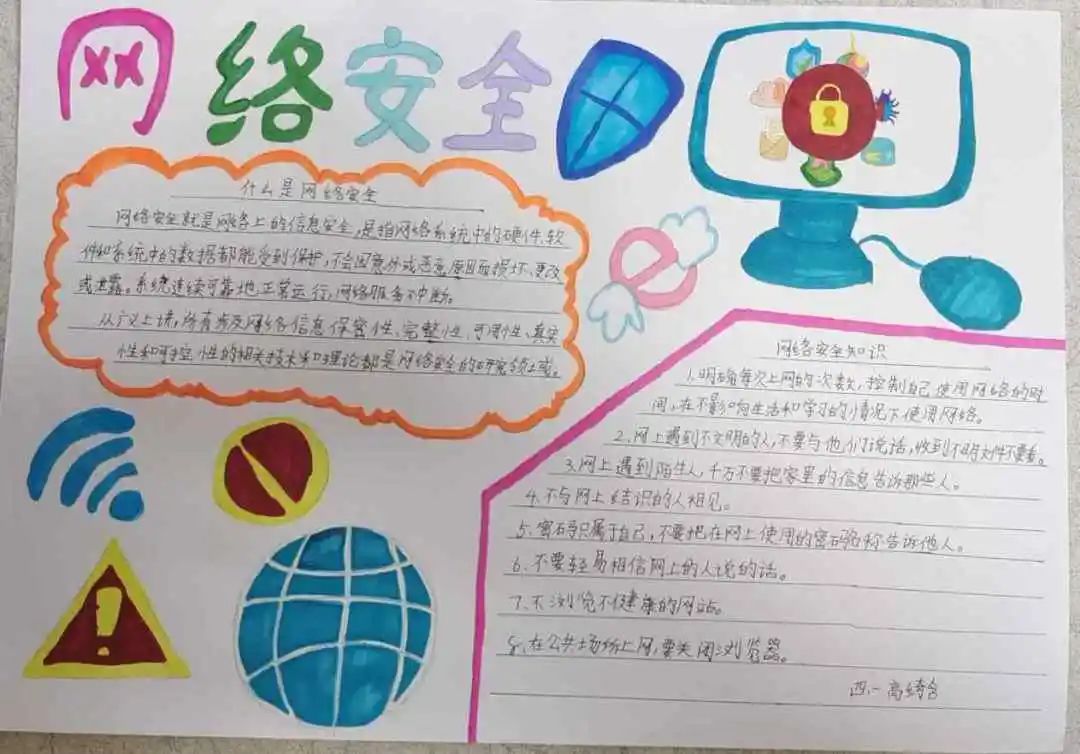 网络安全
什么是网络安全
网络安全就是网络上的信息安全,是指网络系统中的硬件、软
件和系统中的数据都能受到保护,不会因意外或恶意原因而损坏、更改
或泄露。系统连续可靠地正常运行,网络服务不中断。
从广义上讲,所有涉及网络信息保密性、完整性、可用性、真实
性和可控性的相关技术和理论都是网络安全的研究领域。
e
网络安全知识
1.明确每次上网的次数,控制自己使用网络的时
间,在不影响生活和学习的情况下使用网络。
2.网上遇到不文明的人,不要与他们说话,收到不明文件不要看。
3.网上遇到陌生人,千万不要把家里的信息告诉那些人。
4.不与网上结识的人相见。
5.密码只属于自己,不要把在网上使用的密码名称告诉他人。
6.不要轻易相信网上的人说的话。
7.不浏览不健康的网站。
8.在公共场所上网,要关闭浏览器。
四.一高绮